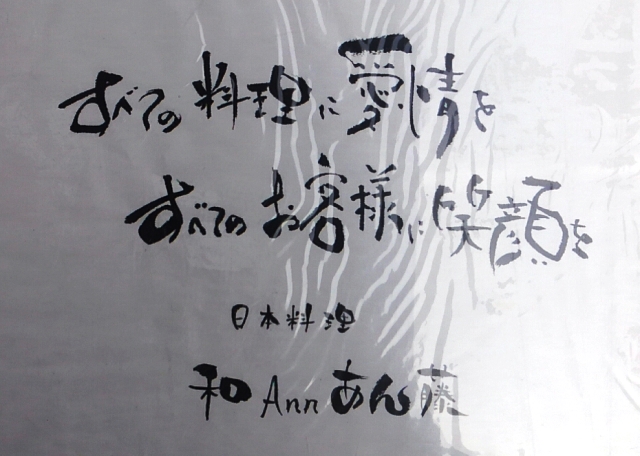 すべての料理に愛情を
すべてのお客様に笑顔を
日本料理
和 Ann あん藤